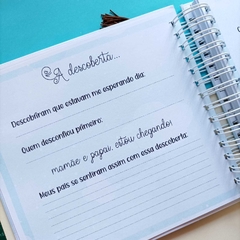 A descoberta...
Descobriram que estavam me esperando dia:
Quem desconfiou primeiro:
mamãe e papai, estou chegando!
Meus pais se sentiram assim com essa descoberta: